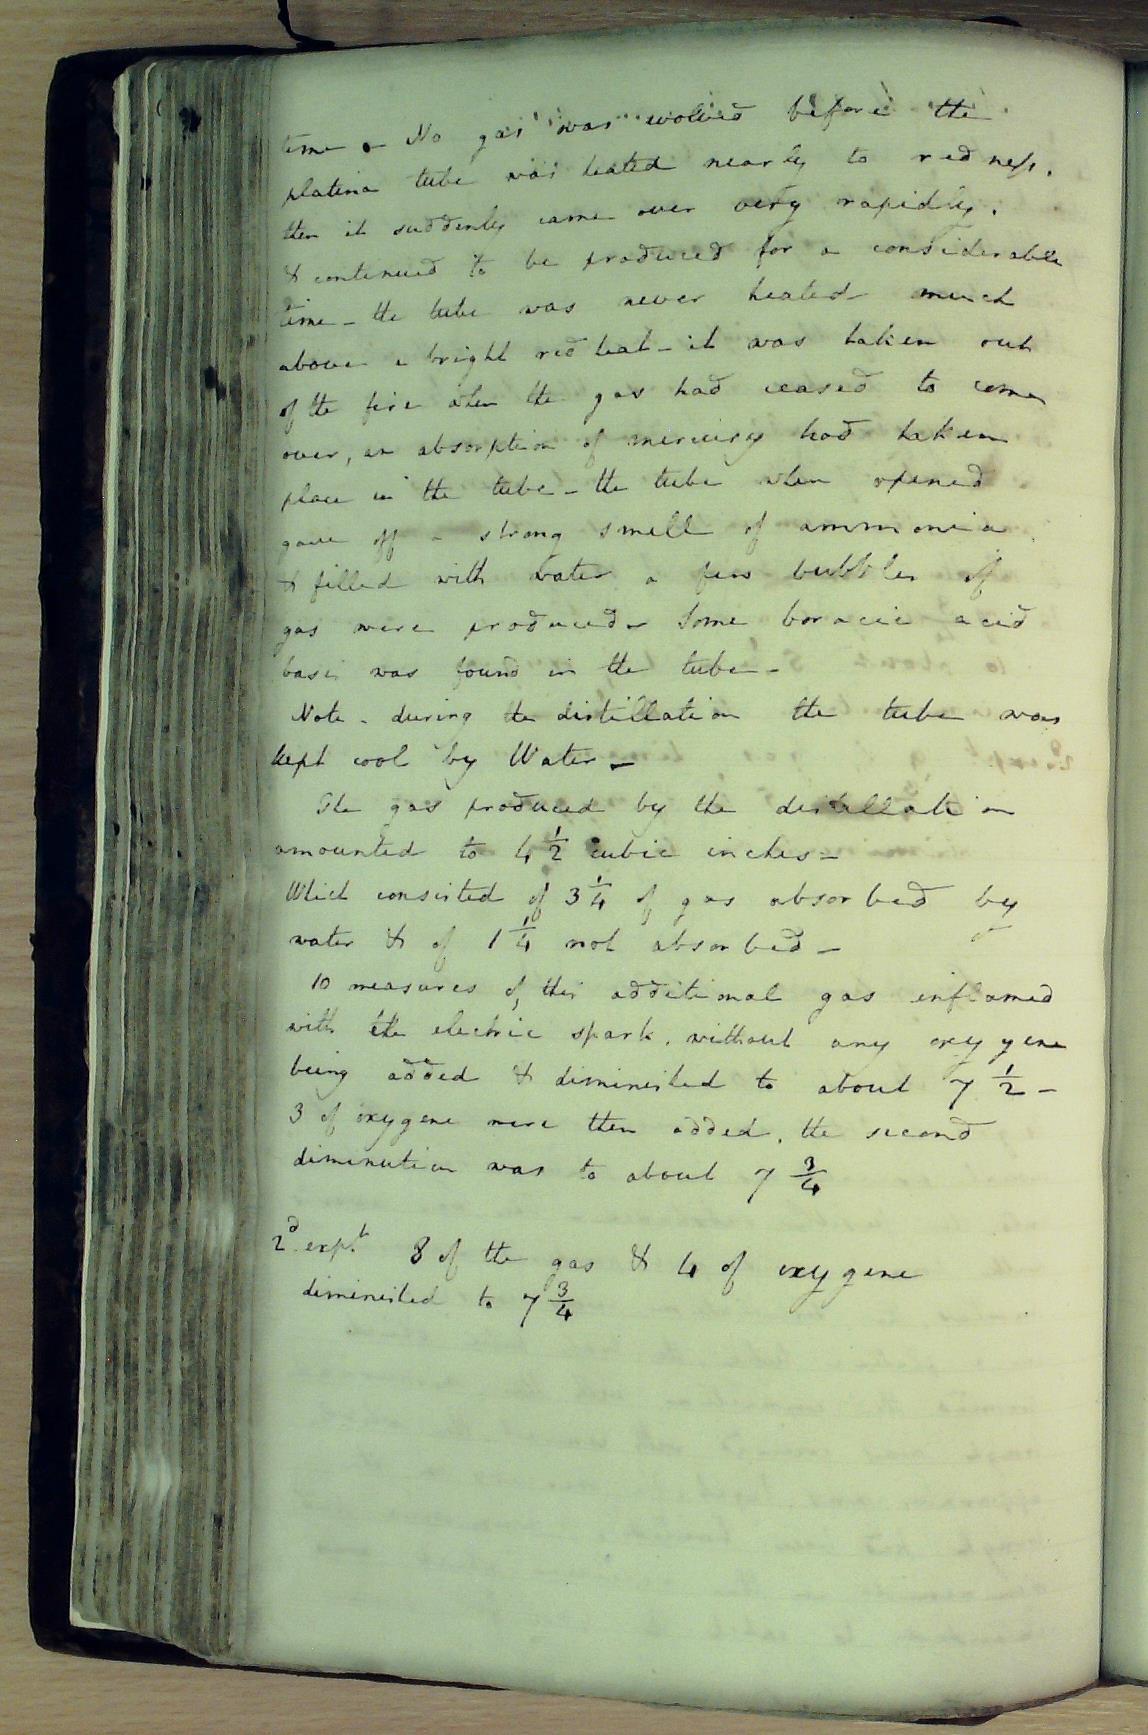 time - No gas was evolved before the
platina tube was heated nearly to redness.
then it suddenly came over very rapidly.
& continued to be produced for a considerable
time - the tube was never heated much
above a bright red heat - it was taken out
of the fire when the gas had ceased to come
over, an absorption of mercury had taken
place in the tube - the tube when opened
gave off a strong smell of ammonia
& filled with water a few bubbles of
gas were produced - Some boracic acid
basis was found in the tube -
Note - during the distillation the tube was
kept cool by Water -
The gas produced by the distillation
amounted to 4 1/2 cubic inches -
Which consisted of 3 1/4 of gas absorbed by
water & of 1 1/4 not absorbed -
10 measures of this additional gas inflamed
with the electric spark, without any oxygene
being added & diminished to about 7 1/2 -
3 of oxygene were then added, the second
diminution was to about 7 3/4
2d expt 8 of the gas & 4 of oxygene
diminished to 7 3/4